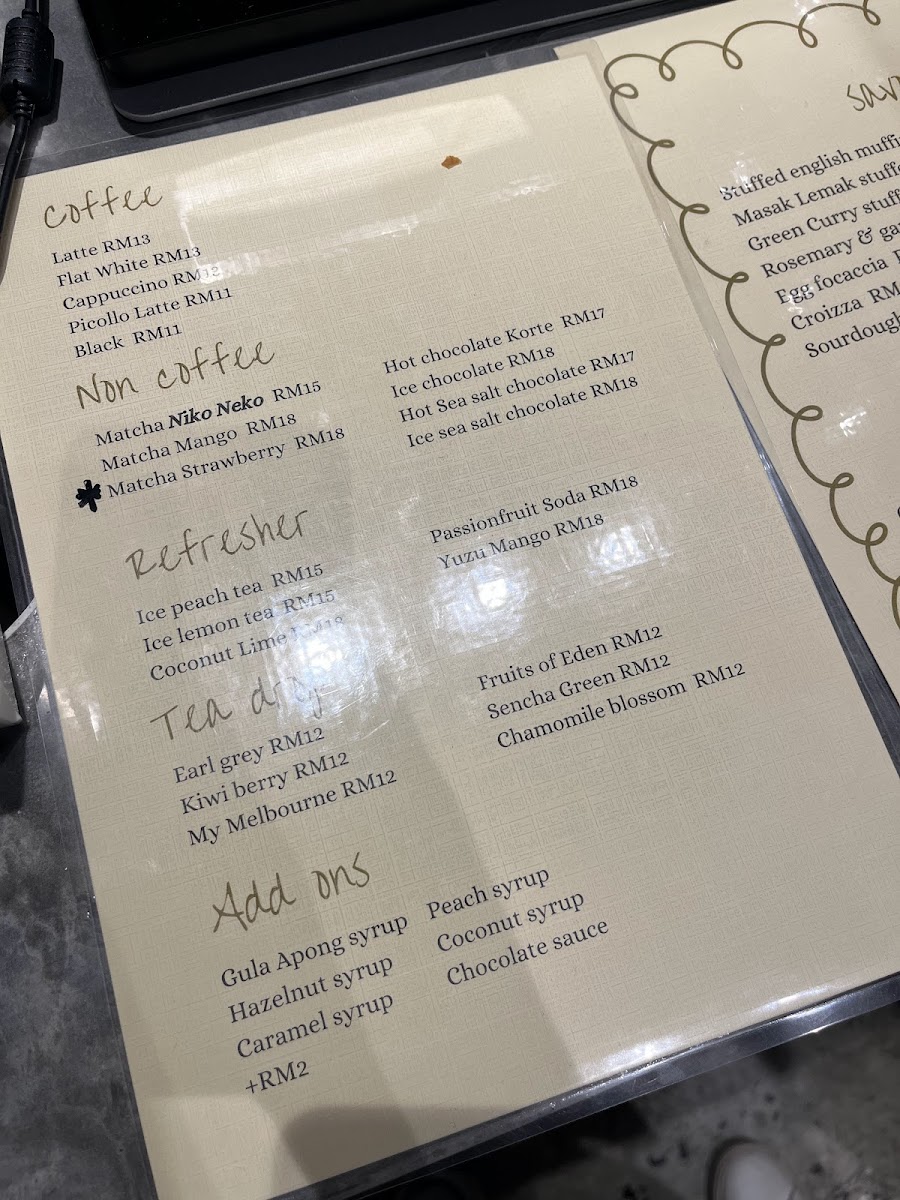 coffee
Latte RM13
Flat White RM13
Cappuccino RM12
Picollo Latte RM11
Black RM11
Non coffee
Matcha Niko Neko RM15
Matcha Mango RM18
Matcha Strawberry RM18
Hot chocolate Korte RM17
Ice chocolate RM18
Hot Sea salt chocolate RM17
Ice sea salt chocolate RM18
Refresher
Ice peach tea RM15
Ice lemon tea RM15
Coconut Lime RM18
Passionfruit Soda RM18
Yuzu Mango RM18
Tea
Earl grey RM12
Kiwi berry RM12
My Melbourne RM12
Fruits of Eden RM12
Sencha Green RM12
Chamomile blossom RM12
Add ons
Gula Apong syrup
Hazelnut syrup
Caramel syrup
+RM2
Peach syrup
Coconut syrup
Chocolate sauce
Stuffed english
Masak Lemak
Green Curry
Rosemary &
Egg focaccia
Croizza RM
Sourdough